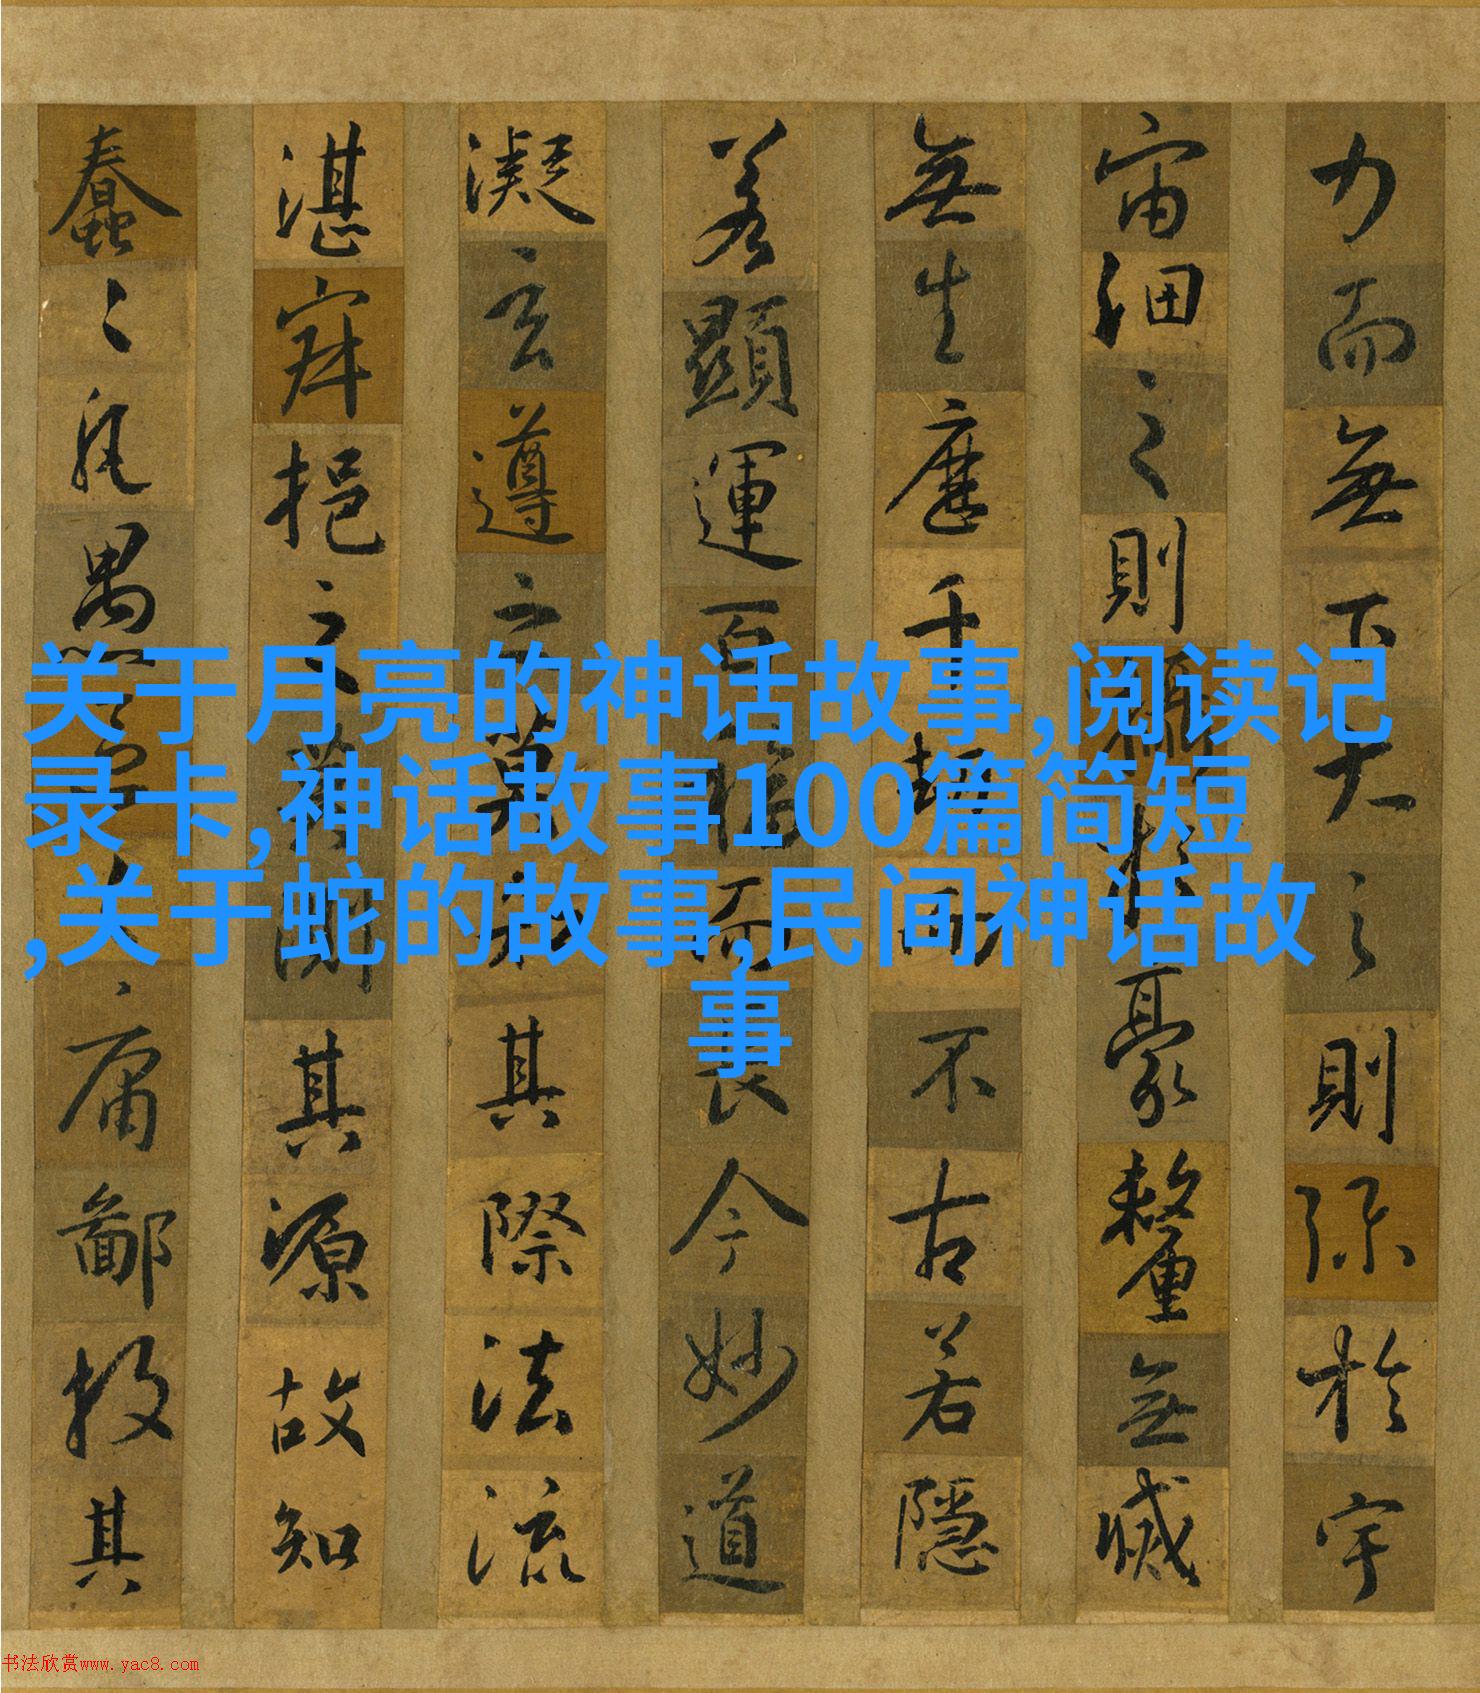 力而無下大之則弥於宇
宙細之則攝於豪釐無滅
無生歷千劫而不古若隱
若顯運百福而長今妙道
凝玄遵之莫知其際法流
湛寂挹之莫測其源故知
蠢々凡愚區々庸鄙投其
关于月亮的神话故事,阅读记
录卡,神话故事100篇简短
,关于蛇的故事,民间神话故
事
书法欣赏www.yac8.com